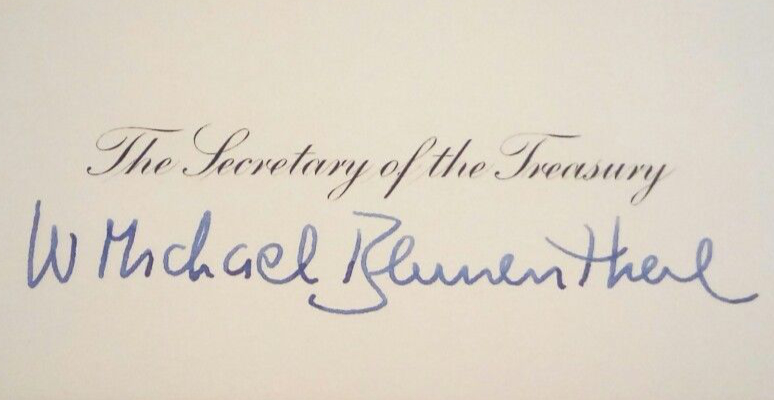 The Secretary of the Treasury
W Michael Blumenthal